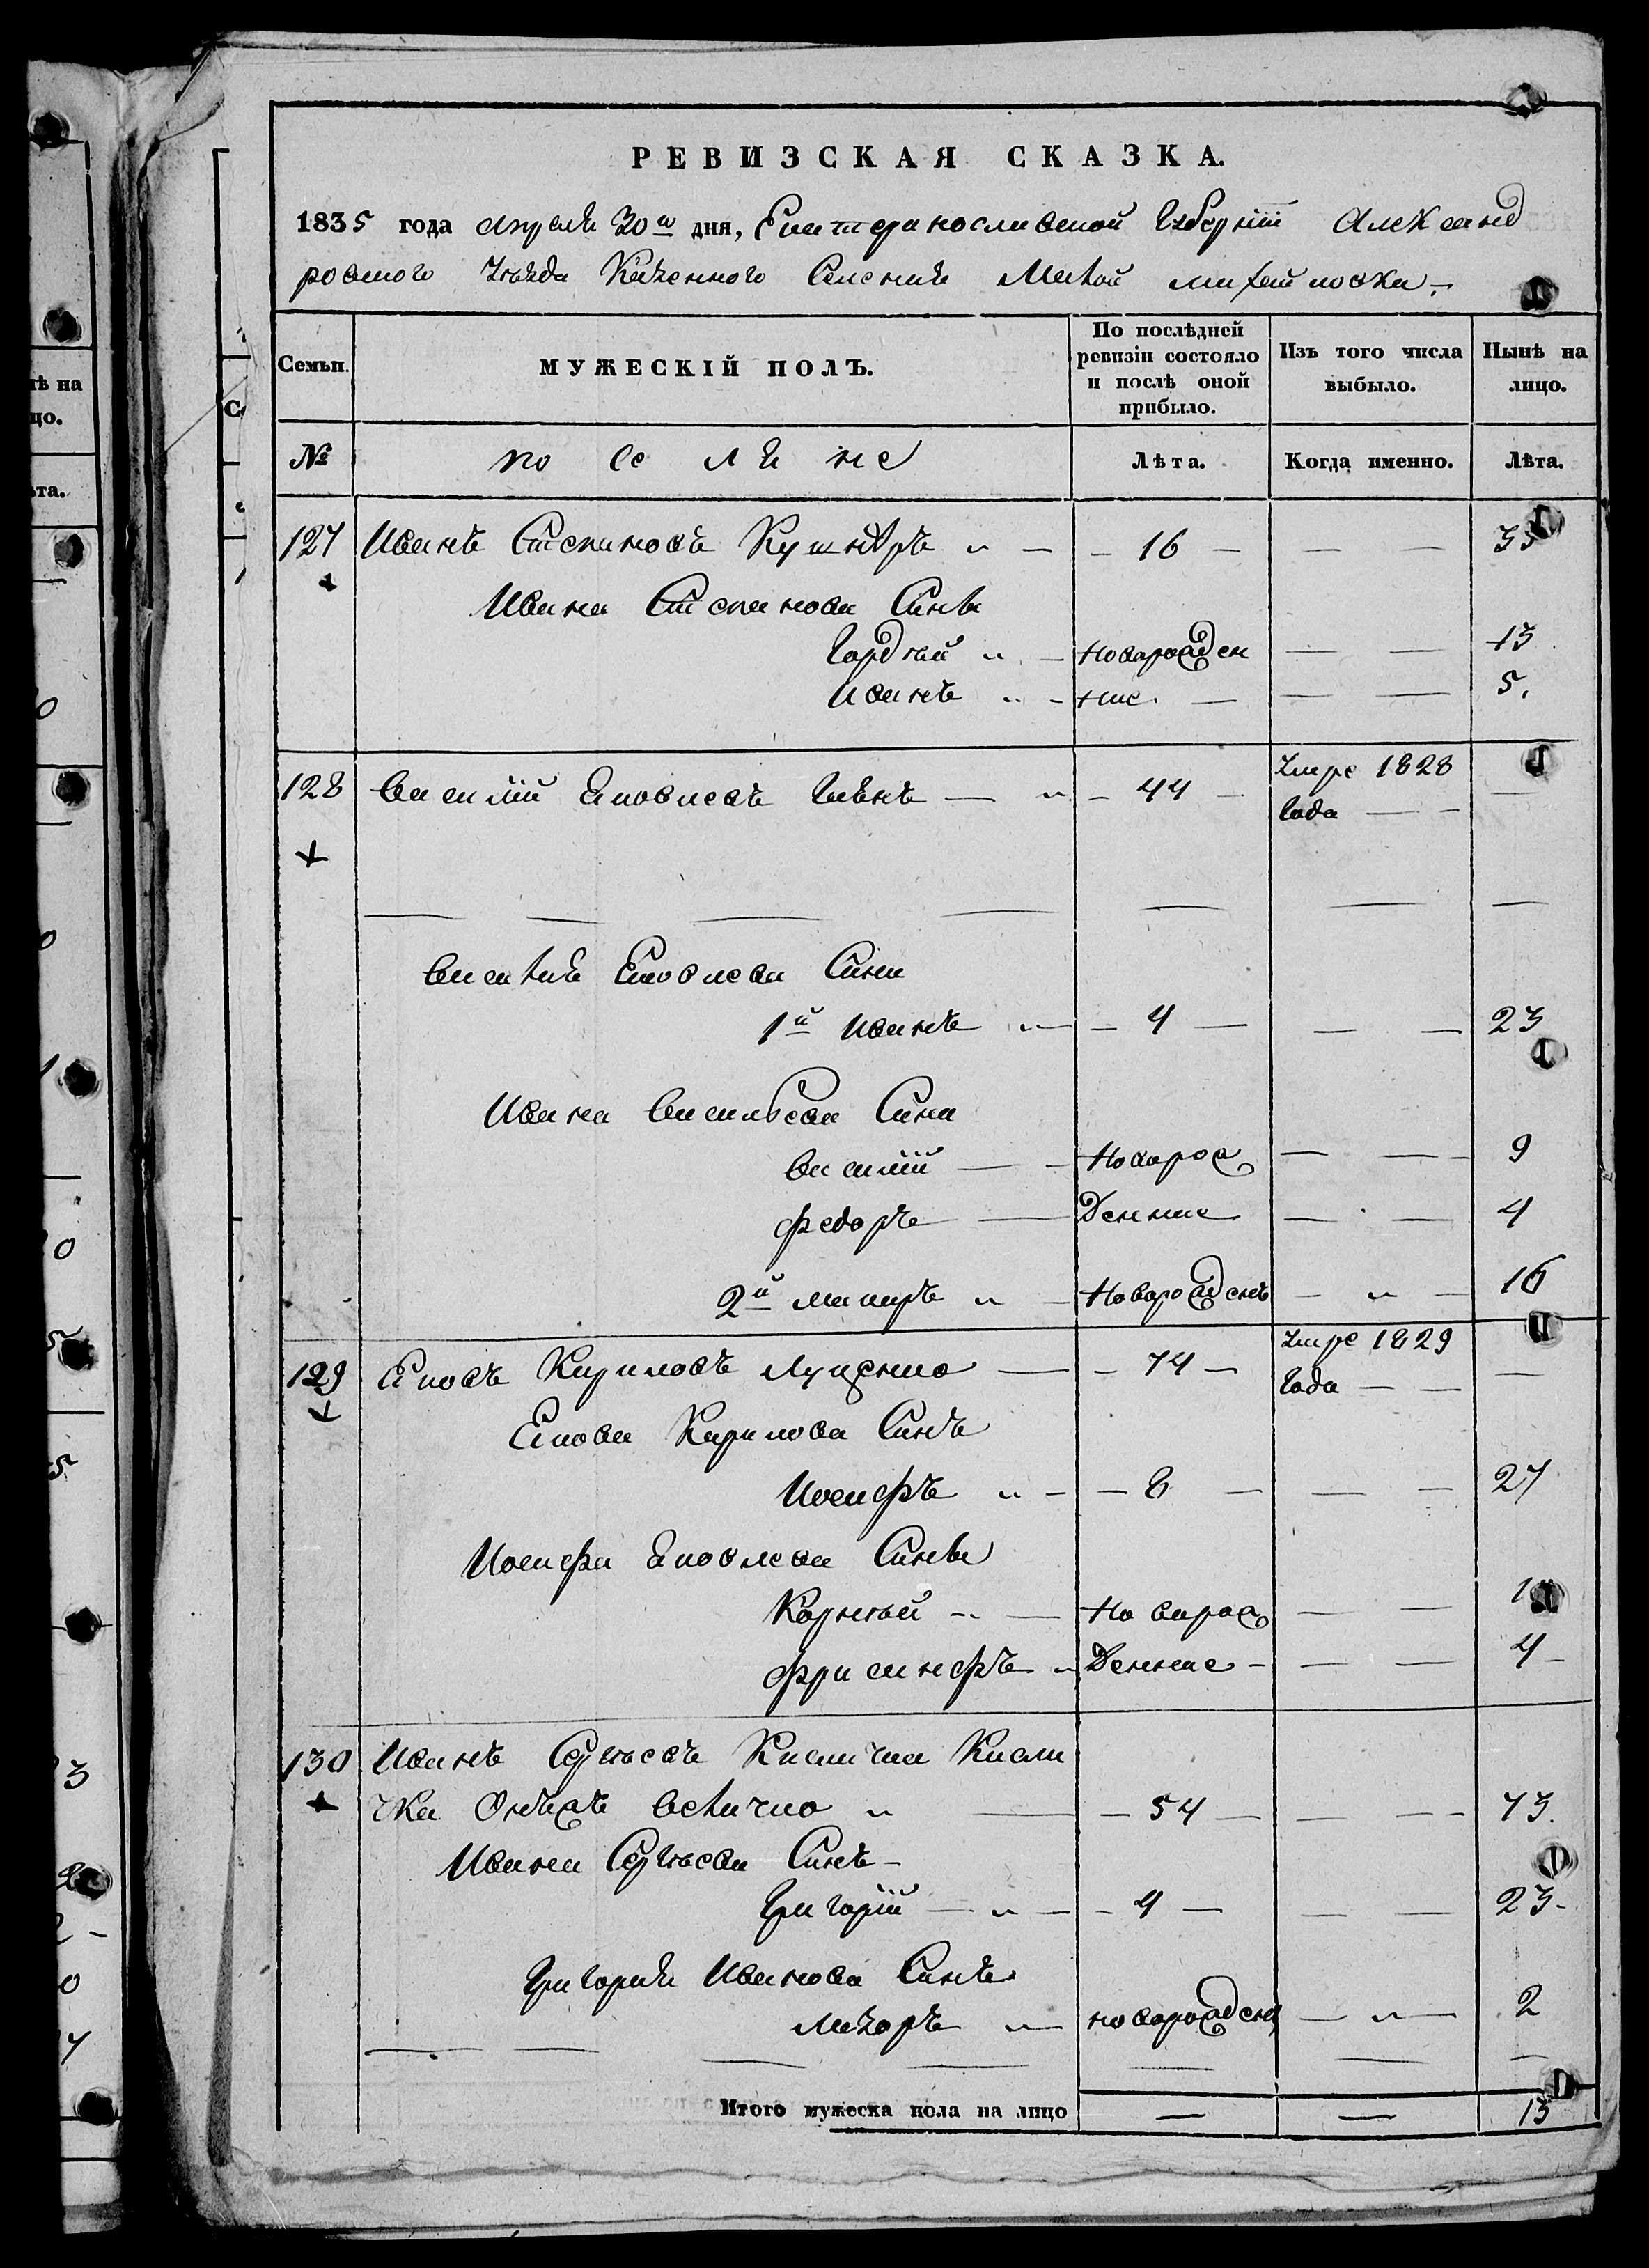 РЕВИЗСКАЯ СКАЗКА.
1835 года апреля 30го дня, Екатеринославской Губернии Александ
ровского уезда Казенного Селения Малой михайловки
Семьи. МУЖЕСКІЙ ПОЛЪ. По послѣдней ревизіи состояло и послѣ оной прибыло. Изъ того числа выбыло. Нынѣ на лицо.
№ поселяне Лѣта. Когда именно. Лѣта.
127 Иванъ Степановъ Кушнѣръ 16 35
Ивана Степанова Сины
Гордѣй новорожден 13
Иванъ ные 5.
128 Василій Яковлевъ 44 умре 1828
Года
Василия Яковлева Сини
1й Иванъ 4 23
Ивана Васильева Сини
Василій Новорож 9
Федоръ Денные 4
2й макаръ Новорожденъ 16
129 Яковъ Кириловъ Луценко 74 умре 1829
Года
Якова Кирилова Синъ
Иосифъ 8 27
Иосифа Яковлева Сины
Корнѣй Новорож
Денные 4
130 Иванъ Сергѣевъ Кисличка Кисли
чка Онъже Величко 54 73.
Ивана Сергѣева Синъ
Григорій 4 23
Григория Иванова Синъ
Назаръ новорожден 2
Итого мужеска пола на лицо 13
нѣ на
цо.
ѣта.